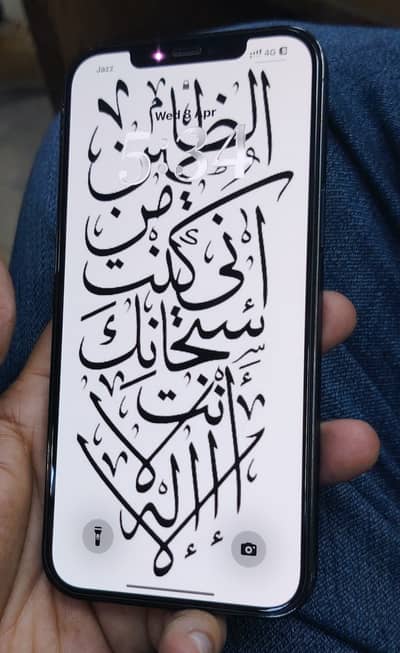 Jazz 4G
Wed 8 Apr
5:34
لا إله إلا
أنت
سبحانك
إني كنت
من
الظالمين